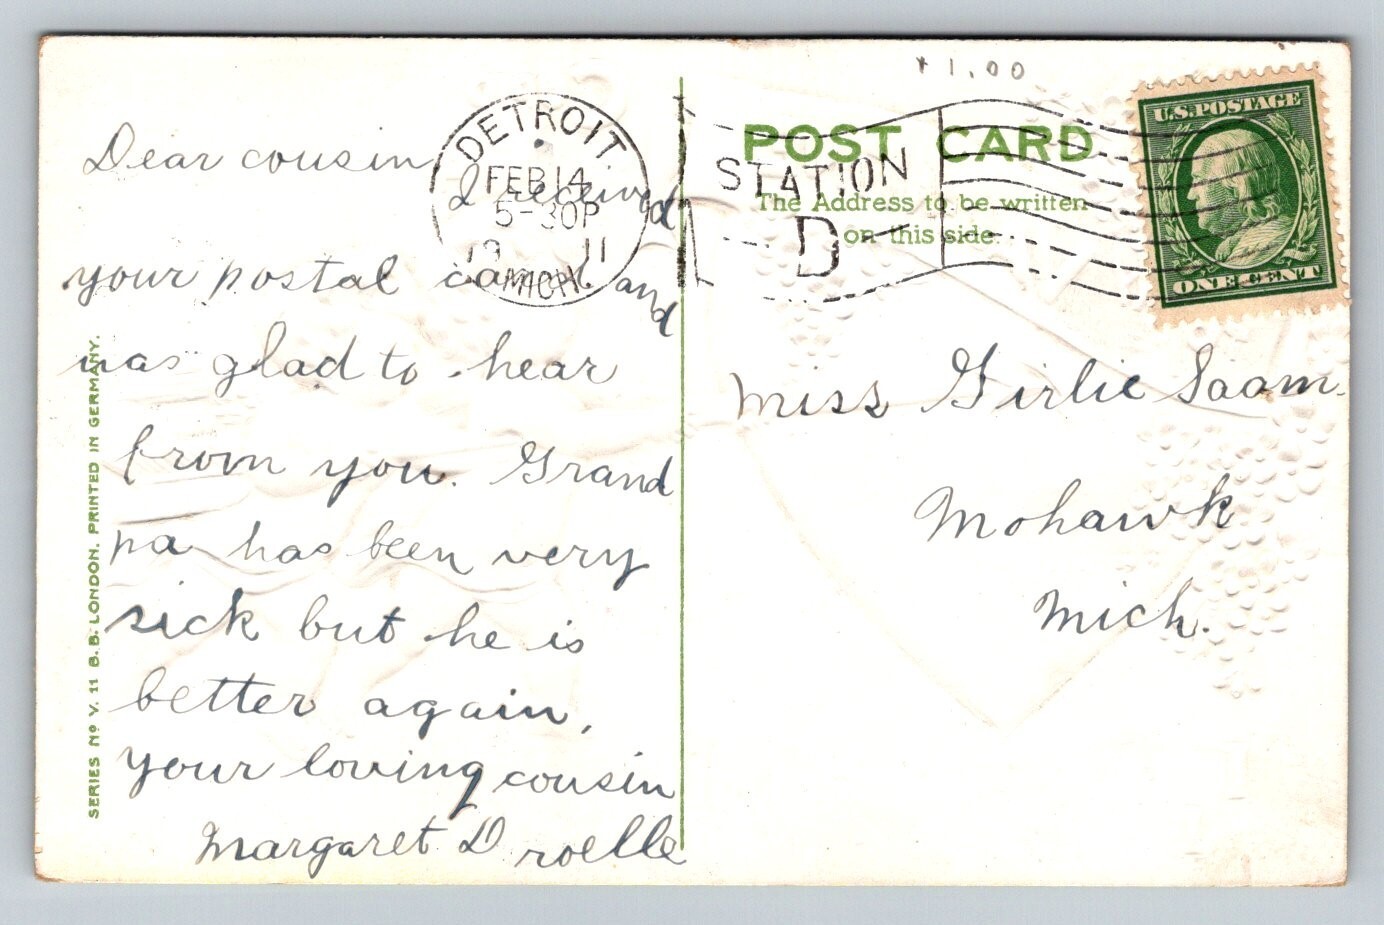 Dear cousin,
I received
your postal card and
was glad to hear
from you. Grand
pa has been very
sick but he is
better again,
your loving cousin
Margaret Droelle
SERIES No V. 11 B.B. LONDON. PRINTED IN GERMANY.
DETROIT.
FEB 14
5-30P
19 11
MICH.
STATION
D
1.00
POST CARD
The Address to be written
on this side.
U.S. POSTAGE
ONE CENT
Miss Girlie Saam.
Mohawk
Mich.